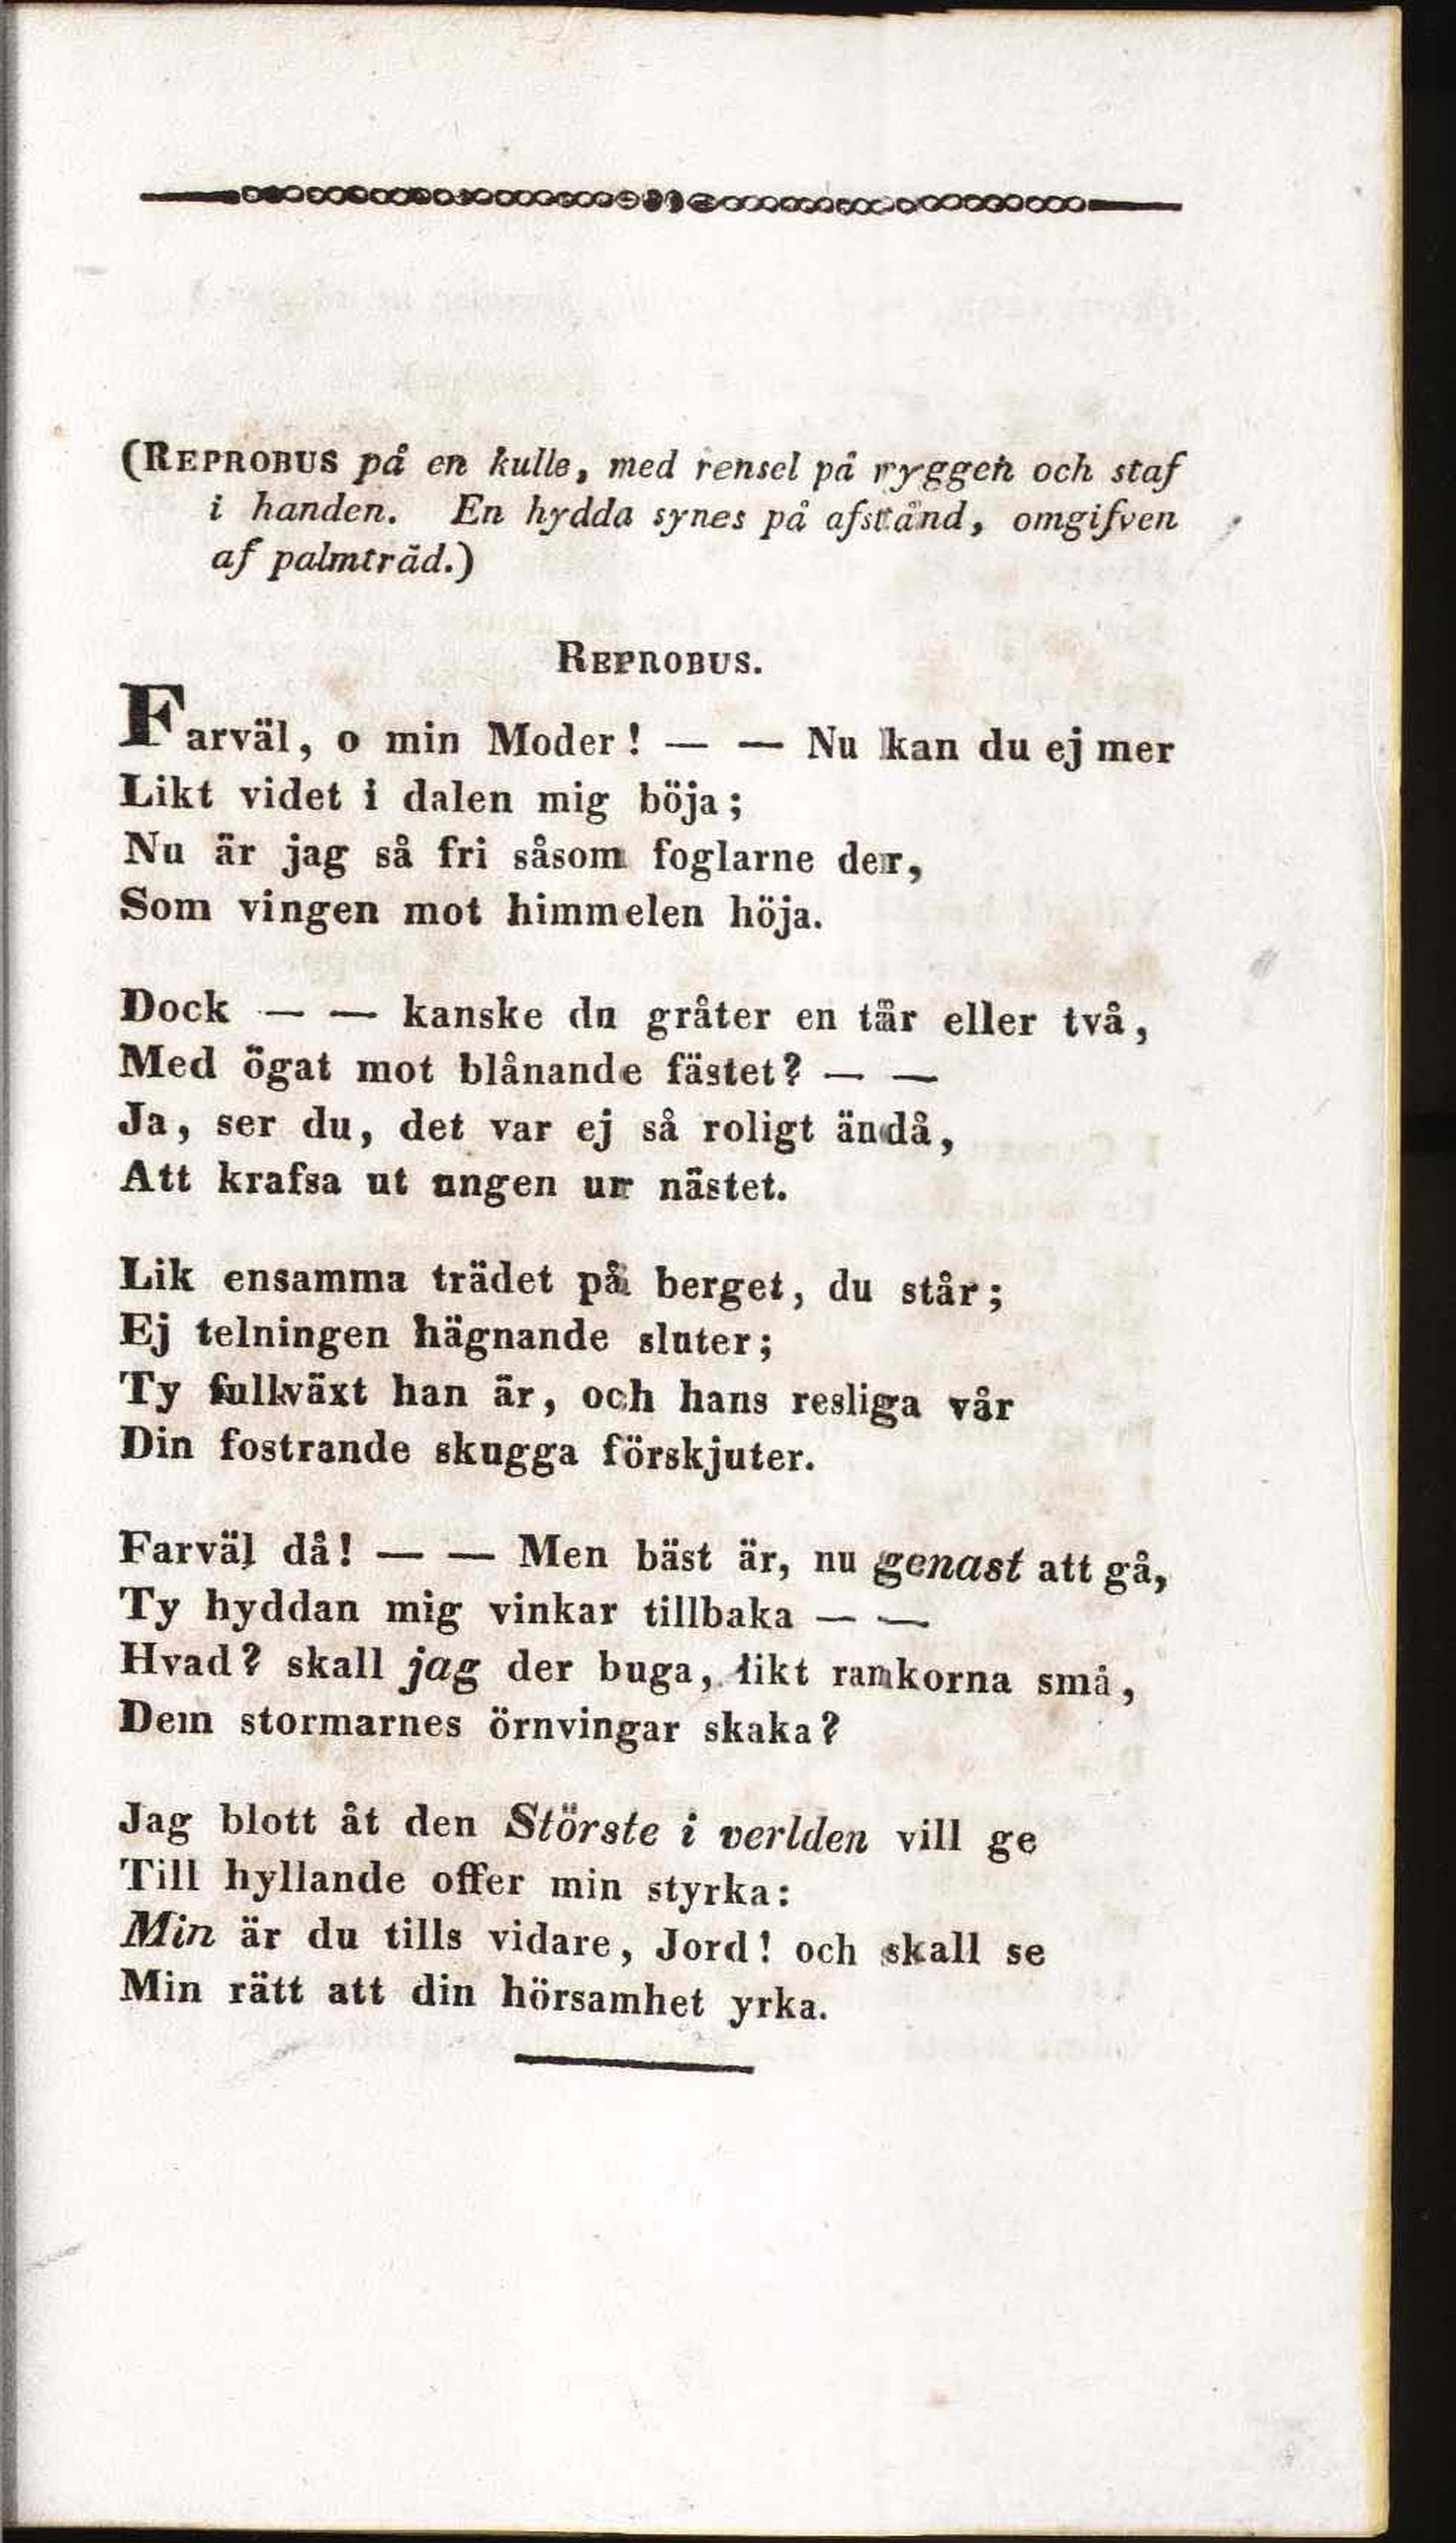 (REPROBUS på en kulle, med rensel på ryggen och staf
i handen. En hydda synes på afstånd, omgifven
af palmträd.)
REPROBUS.
Farväl, o min Moder! — — Nu kan du ej mer
Likt videt i dalen mig böja;
Nu är jag så fri såsom foglarne der,
Som vingen mot himmelen höja.
Dock — — kanske du gråter en tår eller två,
Med ögat mot blånande fästet? — —
Ja, ser du, det var ej så roligt ändå,
Att krafsa ut ungen ur nästet.
Lik ensamma trädet på berget, du står;
Ej telningen hägnande sluter;
Ty fullväxt han är, och hans resliga vår
Din fostrande skugga förskjuter.
Farväl då! — — Men bäst är, nu genast att gå,
Ty hyddan mig vinkar tillbaka — —
Hvad? skall jag der buga, likt rankorna små,
Dem stormarnes örnvingar skaka?
Jag blott åt den Störste i verlden vill ge
Till hyllande offer min styrka:
Min är du tills vidare, Jord! och skall se
Min rätt att din hörsamhet yrka.